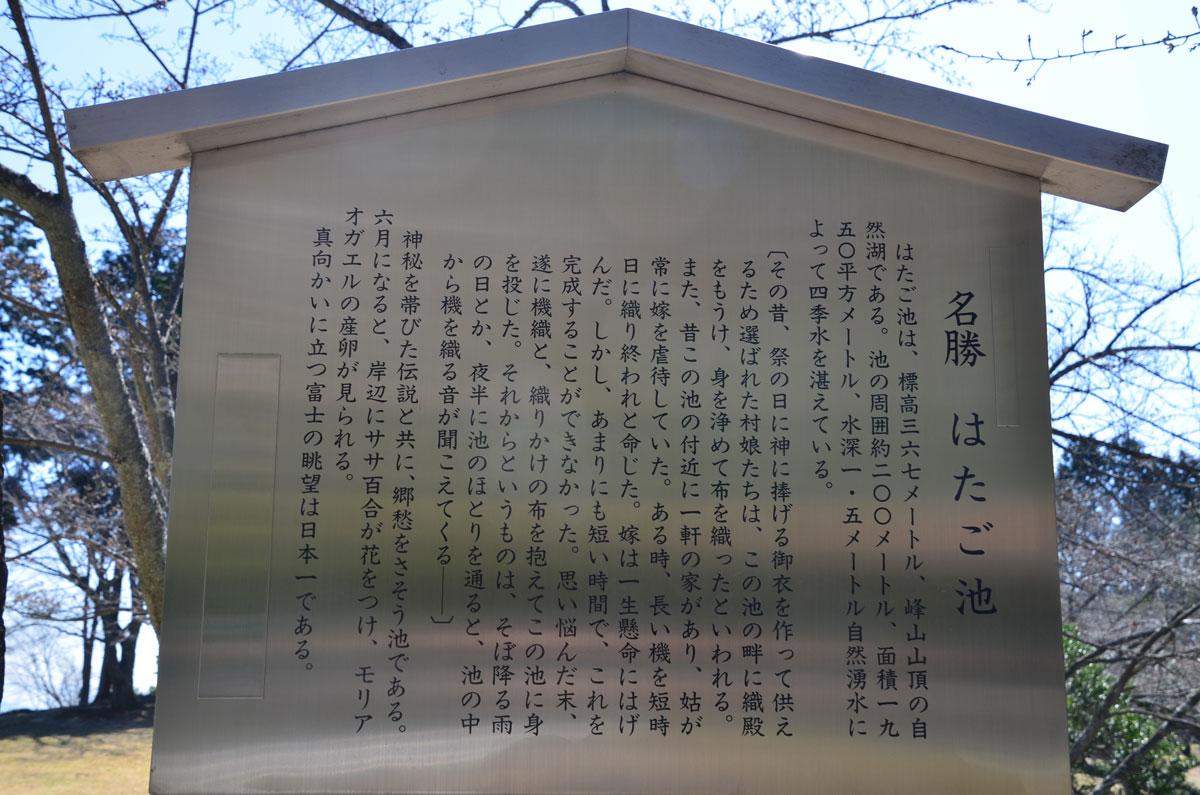 名勝 はたご池
はたご池は、標高三六七メートル、峰山山頂の自
然湖である。池の周囲約二〇〇メートル、面積一九
五〇平方メートル、水深一・五メートル自然湧水に
よって四季水を湛えている。
〔その昔、祭の日に神に捧げる御衣を作って供え
るため選ばれた村娘たちは、この池の畔に織殿
をもうけ、身を浄めて布を織ったといわれる。
また、昔この池の付近に一軒の家があり、姑が
常に嫁を虐待していた。ある時、長い機を短時
日に織り終われと命じた。嫁は一生懸命にはげ
んだ。しかし、あまりにも短い時間で、これを
完成することができなかった。思い悩んだ末、
遂に機織と、織りかけの布を抱えてこの池に身
を投じた。それからというものは、そぼ降る雨
の日とか、夜半に池のほとりを通ると、池の中
から機を織る音が聞こえてくる――〕
神秘を帯びた伝説と共に、郷愁をさそう池である。
六月になると、岸辺にササ百合が花をつけ、モリア
オガエルの産卵が見られる。
真向かいに立つ富士の眺望は日本一である。